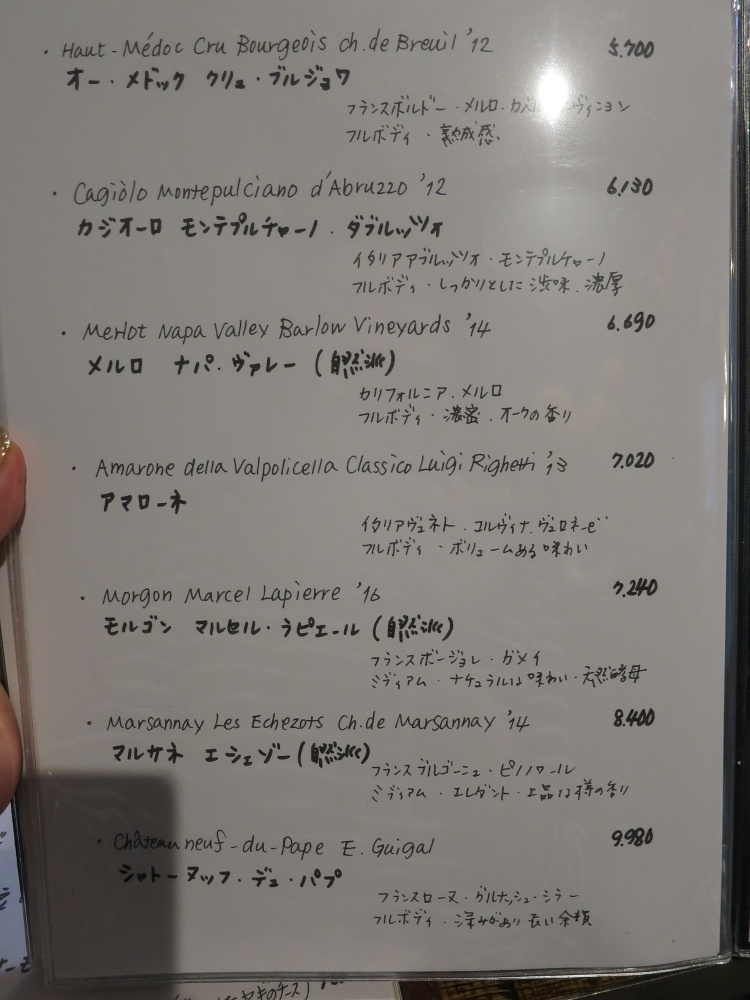 ・ Haut-Médoc Cru Bourgeois ch.de Breuil '12 5.700
オー・メドック クリュ・ブルジョワ
フランスボルドー・メルロ・カベルネ ヴィニヨン
フルボディ・熟成感
・ Cagiòlo Montepulciano d'Abruzzo '12 6.130
カジオーロ モンテプルチャーノ・ダブルッツォ
イタリアアブルッツォ・モンテプルチャーノ
フルボディ・しっかりとした渋味、濃厚
・ Merlot Napa Valley Barlow Vineyards '14 6.690
メルロ ナパ・ヴァレー (自然派)
カリフォルニア・メルロ
フルボディ・濃密、オークの香り
・ Amarone della Valpolicella Classico Luigi Righetti '13 7.020
アマローネ
イタリアヴェネト・コルヴィナ、ヴェロネーゼ
フルボディ・ボリュームある味わい
・ Morgon Marcel Lapierre '16 7.240
モルゴン マルセル・ラピエール (自然派)
フランスボージョレ・ガメイ
ミディアム・ナチュラルな味わい・天然酵母
・ Marsannay Les Echezots Ch.de Marsannay '14 8.400
マルサネ エシェゾー (自然派)
フランスブルゴーニュ・ピノノワール
ミディアム・エレガント・上品な樽の香り
・ Châteauneuf-du-Pape E. Guigal 9.980
シャトーヌッフ・デュ・パプ
フランスローヌ・グルナッシュ・シラー
フルボディ・深みがあり長い余韻
ヤギのチーズ)